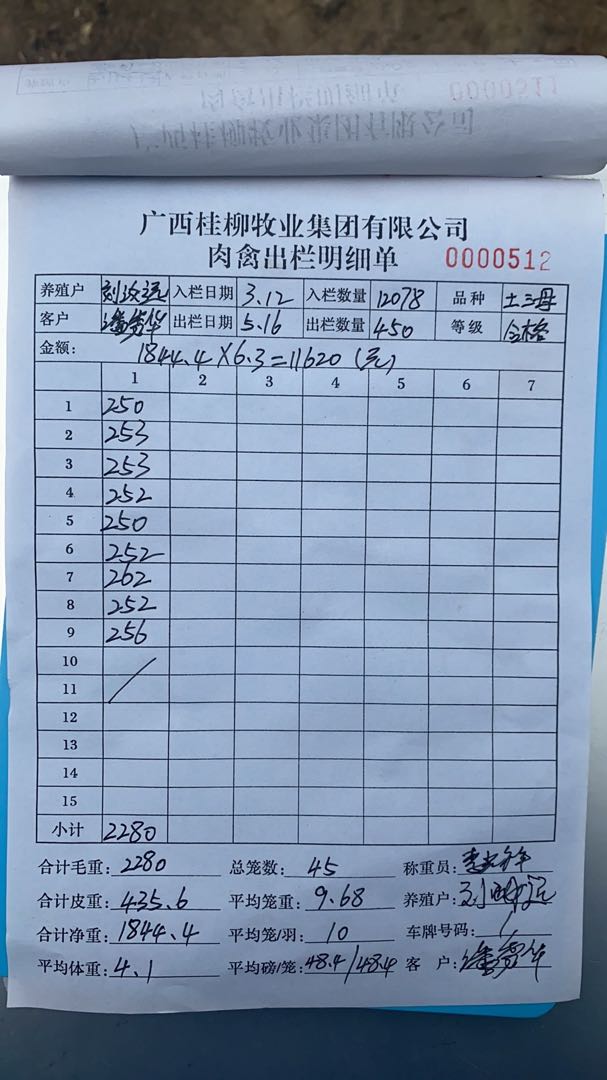 广西桂柳牧业集团有限公司
肉禽出栏明细单 0000511
广西桂柳牧业集团有限公司
肉禽出栏明细单 0000512
养殖户 入栏日期 3.12 入栏数量 12078 品种 土三母
客户 出栏日期 5.16 出栏数量 450 等级 合格
金额: 1844.4×6.3=11620(元)
1 2 3 4 5 6 7
1 250
2 253
3 253
4 252
5 250
6 252
7 262
8 252
9 256
10
11
12
13
14
15
小计 2280
合计毛重: 2280 总笼数: 45 称重员:
合计皮重: 435.6 平均笼重: 9.68 养殖户:
合计净重: 1844.4 平均笼/羽: 10 车牌号码: /
平均体重: 4.1 平均磅/笼: 48.4/48.4 客户: